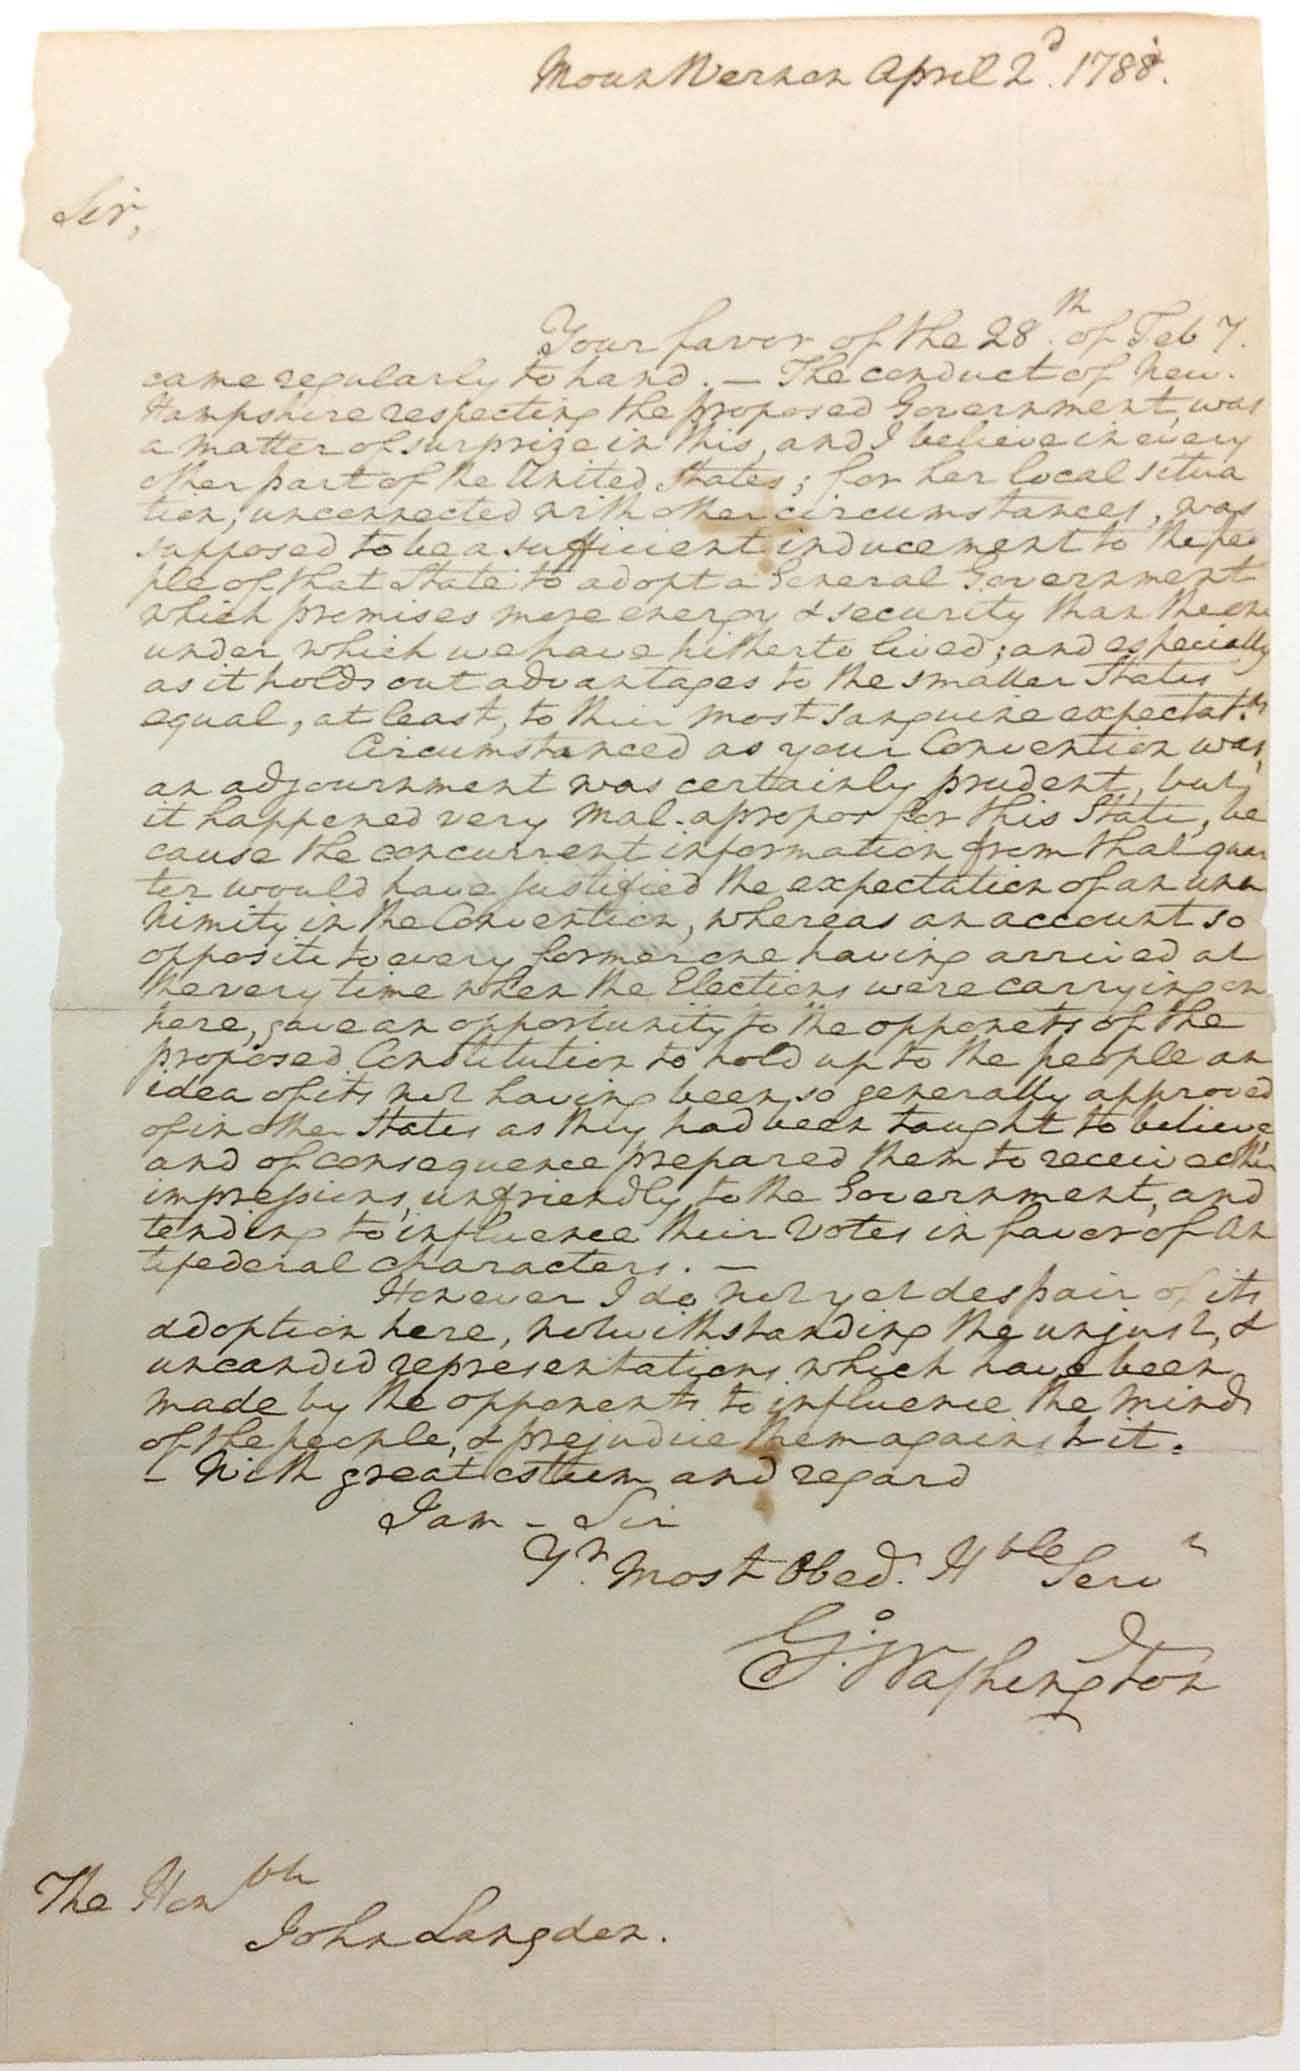 Mount Vernon April 2d. 1788.
Sir,
Your favor of the 28th. of Feby.
came regularly to hand. — The conduct of New-
Hampshire respecting the proposed Government, was
a matter of surprize in this, and I believe in every
other part of the United States; for her local situa
tion, unconnected with other circumstances, was
supposed to be a sufficient inducement to the peo
ple of that State to adopt a General Government
which promises more energy & security than the one
under which we have hitherto lived; and especially
as it holds out advantages to the smaller States
equal, at least, to their most sanguine expectatns.
Circumstanced as your Convention was,
an adjournment was certainly prudent, but
it happened very mal-apropos for this State, be
cause the concurrent information from that quar
ter would have justified the expectation of an una
nimity in the Convention, whereas an account so
opposite to every former one having arrived at
the very time when the Elections were carrying on
here, gave an opportunity to the opponets of the
proposed Constitution to hold up to the people an
idea of its not having been so generally approved
of in other States as they had been taught to believe,
and of consequence prepared them to receive other
impressions, unfriendly to the Government, and
tending to influence their votes in favor of An
tifederal characters. —
However I do not yet despair of its
adoption here, notwithstanding the unjust, &
uncandid representations which have been
made by the opponents to influence the minds
of the people, & prejudice them against it.
— With great esteem and regard
I am - Sir
Yr. most Obedt. Hble Servt
Go: Washington
The Honble
John Langdon.